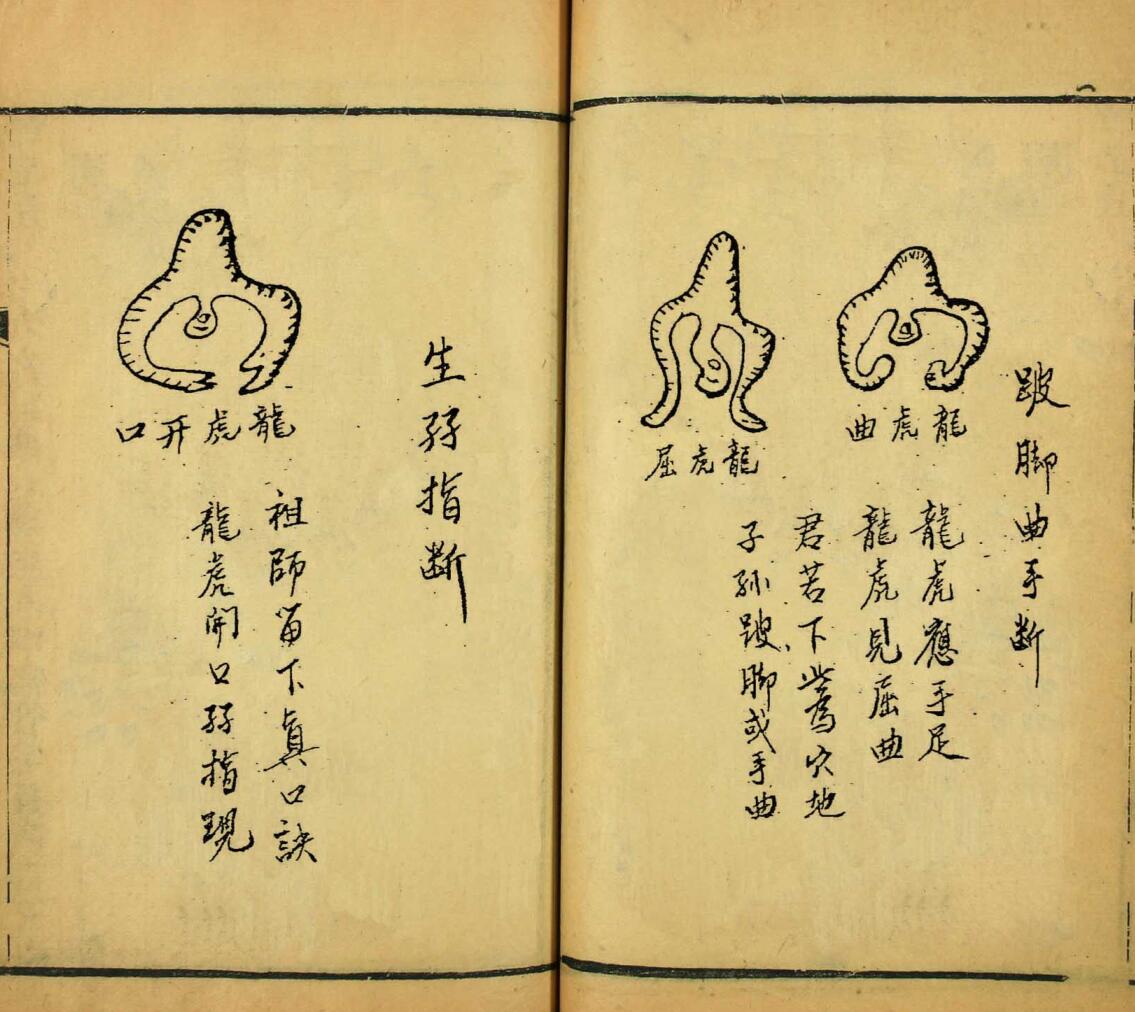 跛脚曲手断
龍虎曲
龍虎應手足
龍虎見屈曲
龍虎屈
君若下此為穴地
子孫跛脚或手曲
生孖指断
龍虎开口
祖師留下真口訣
龍虎開口孖指現